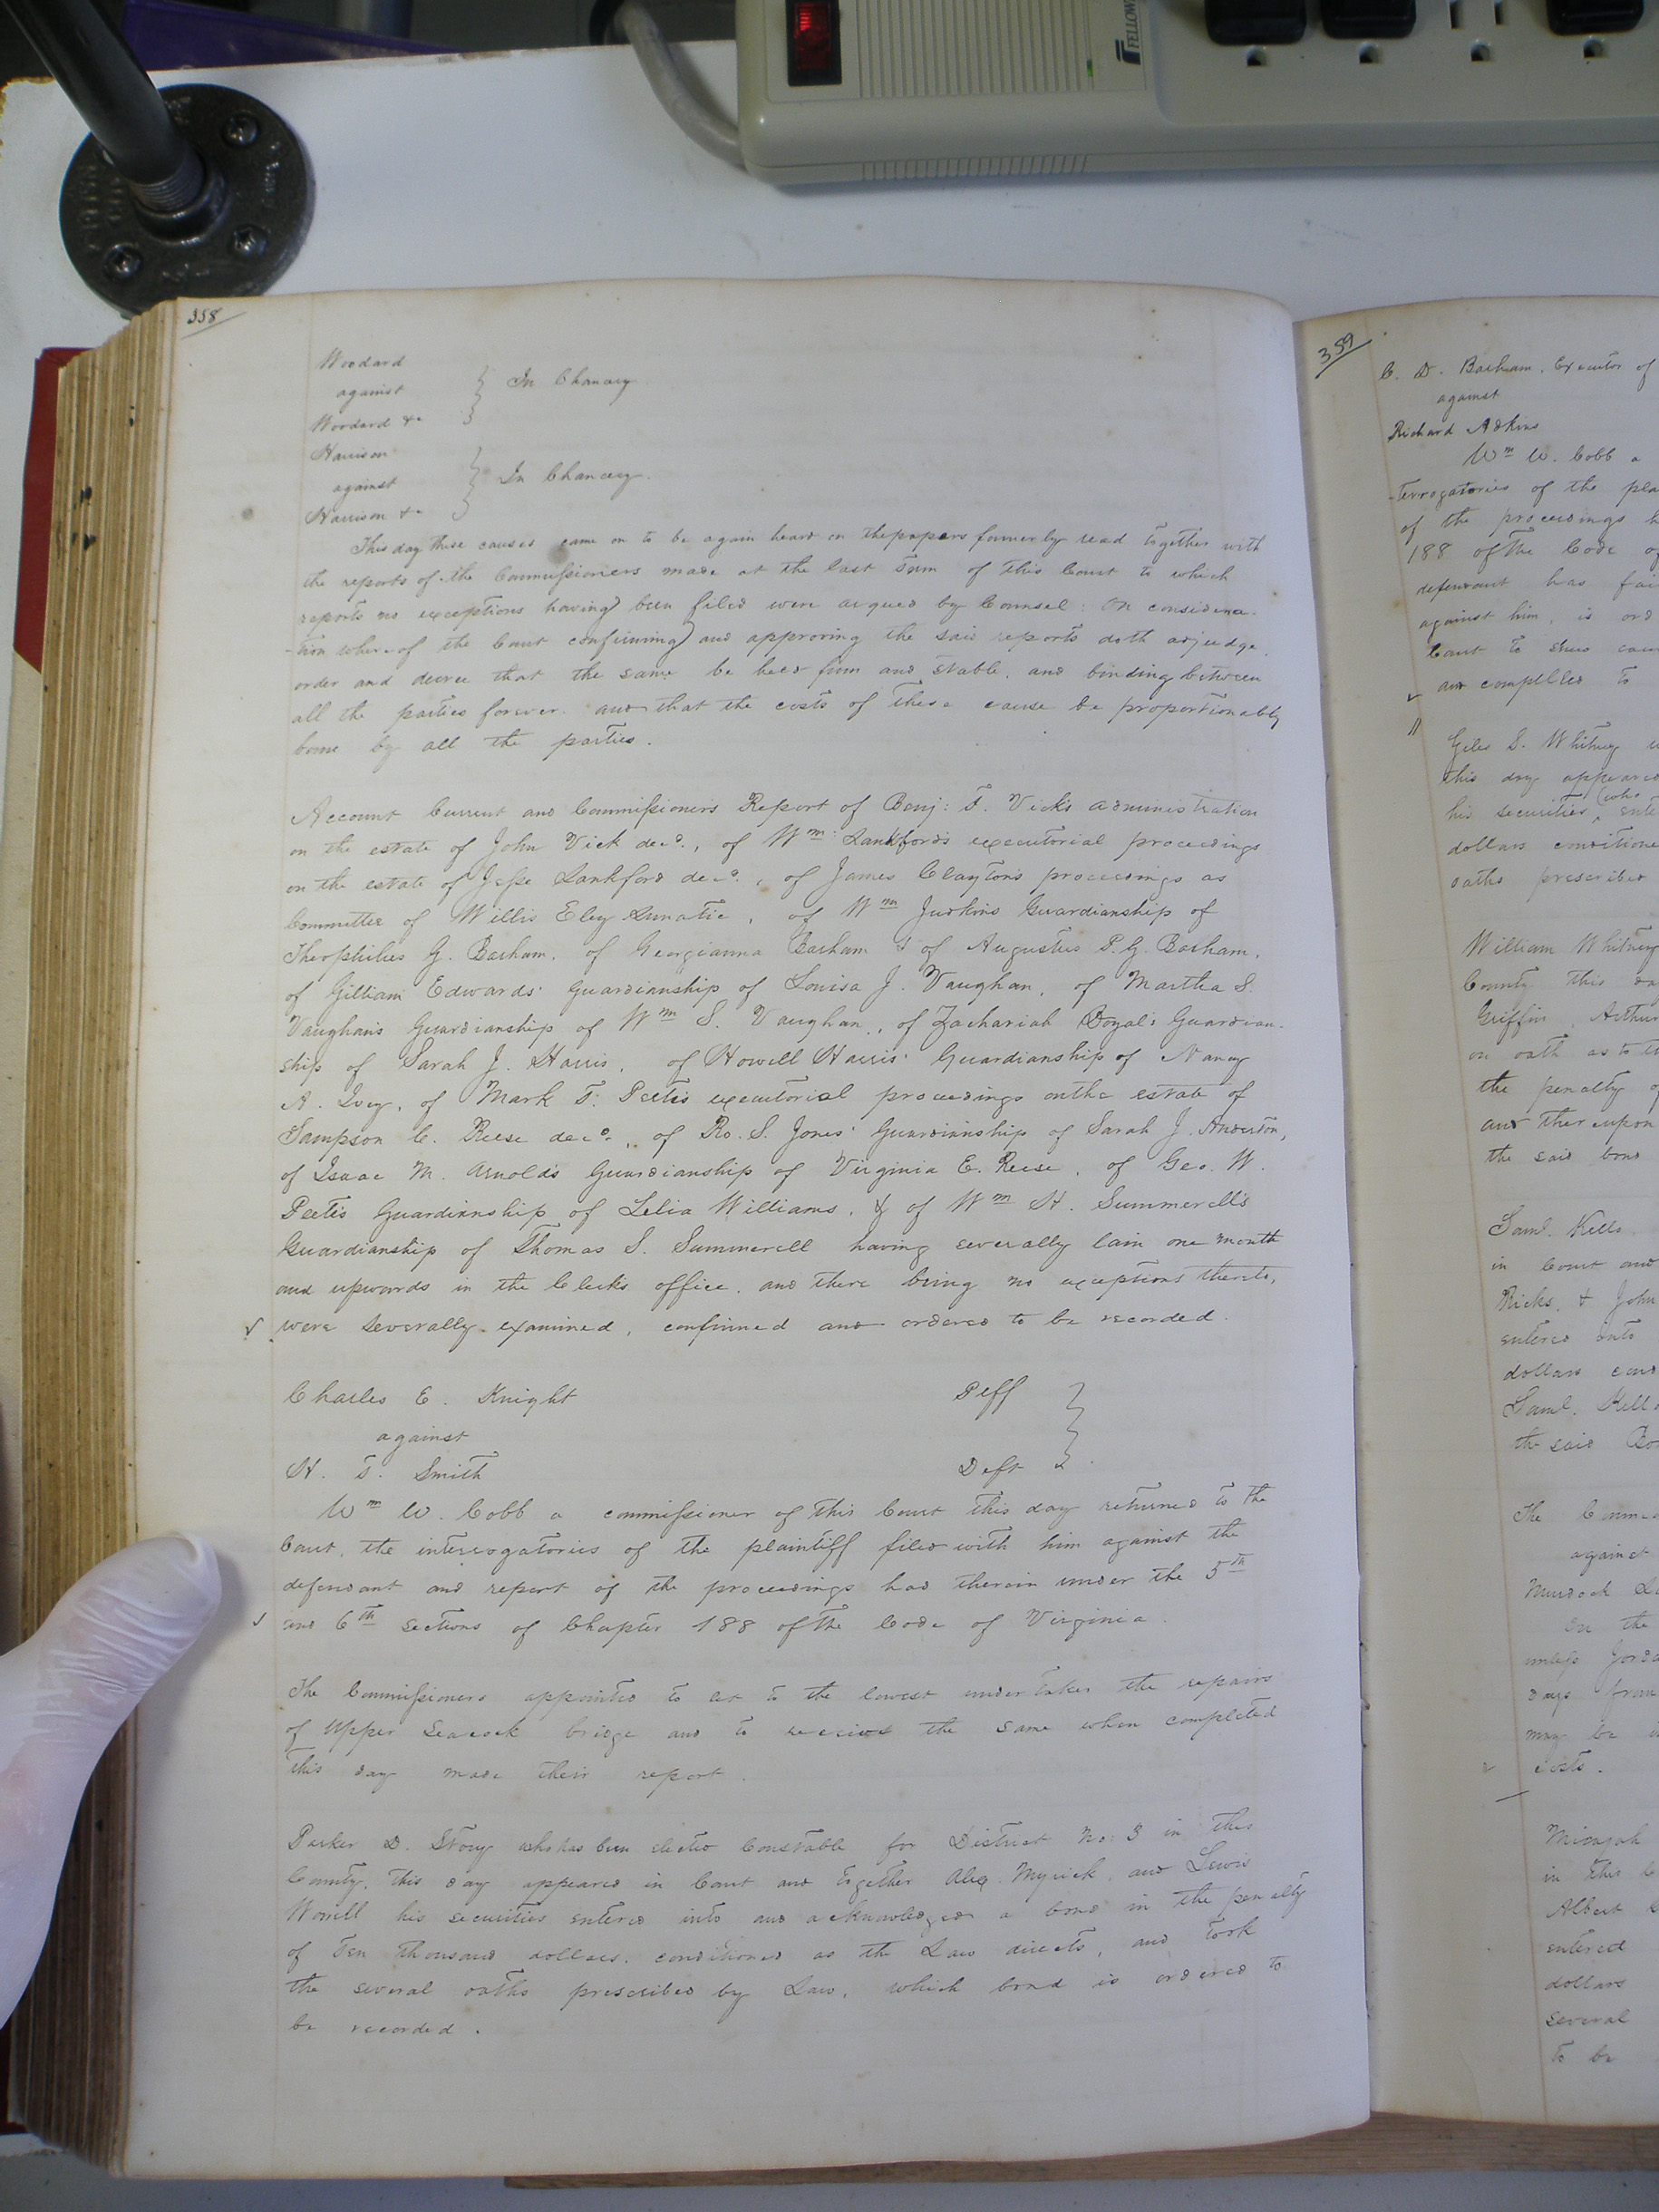 FELLOW
358
Woodard
against } In Chancery
Woodard &c
Harrison
against } In Chancery.
Harrison &c
This day these causes came on to be again heard on the papers formerly read together with
the reports of the Commissioners made at the last term of this Court to which
reports no exceptions having been filed were argued by Counsel: On considera-
-tion whereof the Court confirming and approving the said reports doth adjudge,
order and decree that the same be held firm and stable, and binding between
all the parties forever. and that the costs of these cause be proportionably
borne by all the parties.
Account Current and Commissioners Report of Benj: F. Vick's administration
on the estate of John Vick decd., of Wm. Lankford's executorial proceedings
on the estate of Jesse Lankford decd., of James Clayton's proceedings as
Committee of Willis Eley Lunatic, of Wm Judkins Guardianship of
Theophilus G. Barham, of Georgianna Barham & of Augustus P. G. Barham,
of Gilliam Edwards' Guardianship of Louisa J. Vaughan, of Martha S.
Vaughan's Guardianship of Wm S. Vaughan, of Zachariah Boyal's Guardian-
ship of Sarah J. Harris, of Howell Harris' Guardianship of Nancy
A. Ivey, of Mark F. Peete's executorial proceedings on the estate of
Sampson C. Reese decd., of Ro. S. Jones' Guardianship of Sarah J. Anderton,
of Isaac M. Arnold's Guardianship of Virginia E. Reese, of Geo. W.
Peete's Guardianship of Lelia Williams, & of Wm H. Summerell's
Guardianship of Thomas S. Summerell having severally lain one month
and upwards in the Clerk's office, and there being no exceptions thereto,
were severally examined, confirmed and ordered to be recorded.
Charles E. Knight Plff
against
H. T. Smith Deft
Wm W. Cobb a commissioner of this Court this day returned to the
Court, the interrogatories of the plaintiff filed with him against the
defendant and report of the proceedings had therein under the 5th
and 6th sections of Chapter 188 of the Code of Virginia.
The Commissioners appointed to let to the lowest undertaker the repairs
of Upper Seacock bridge and to receive the same when completed
this day made their report.
Parker D. Story who has been elected Constable for District No: 3 in this
County, this day appeared in Court and together Alex. Myrick, and Lewis
Worrell his securities entered into and acknowledged a bond in the penalty
of Ten thousand dollars, conditioned as the Law directs, and took
the several oaths prescribed by Law, which bond is ordered to
be recorded.
359
C. D. Barham, Executor of
against
Richard Adkins
Wm W. Cobb a
-terrogatories of the pla
of the proceedings h
188 of the Code of
defendant has fai
against him, is ord
Court to shew cau
are compelled to
Giles S. Whitney
this day appeared
his securities, (who ente
dollars conditione
oaths prescribed
William Whitney
County this da
Griffin, Arthur
on oath as to th
the penalty of
and thereupon
the said bond
Saml. Kello
in Court and
Ricks, & John
entered into
dollars cond
Saml. Kello
the said Bo
The Comm
against
Murdock
On the
unless Jorda
days from
may be
costs.
Micajah
in this C
Albert
entered
dollars
several
to be